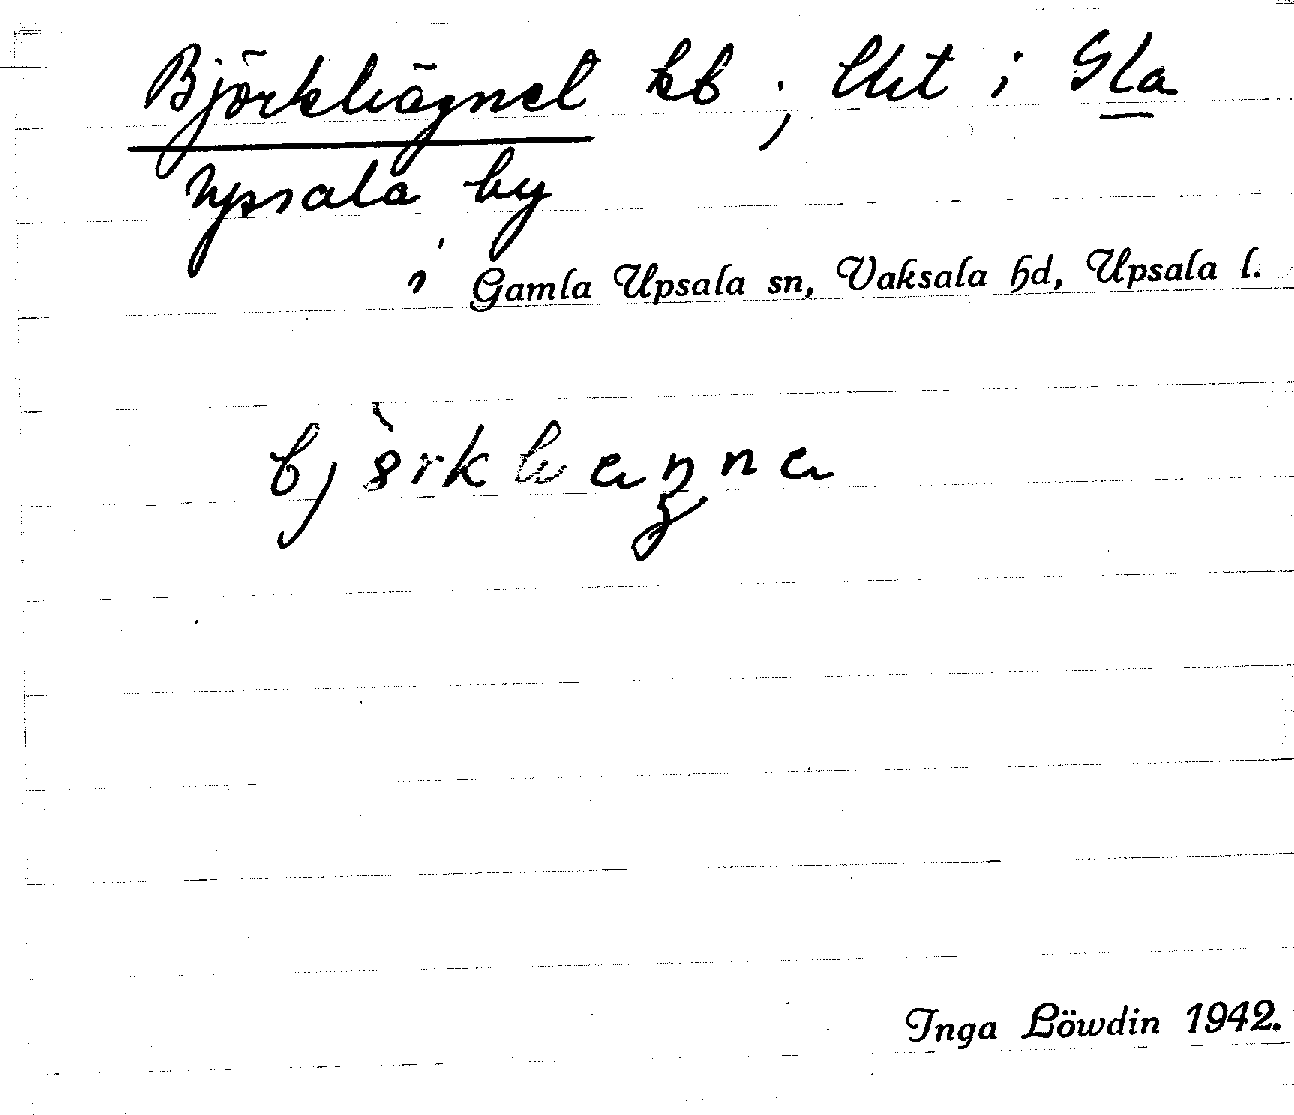 Björkhägnet hb ; Ägt i Gla
Upsala by
i Gamla Upsala sn, Vaksala hd, Upsala l.
Inga Löwdin 1942.